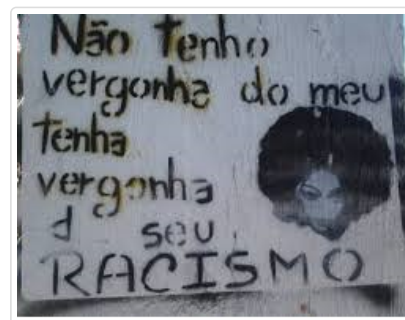 Não Tenho
vergonha do meu
Tenha
vergonha
d seu
RACISMO